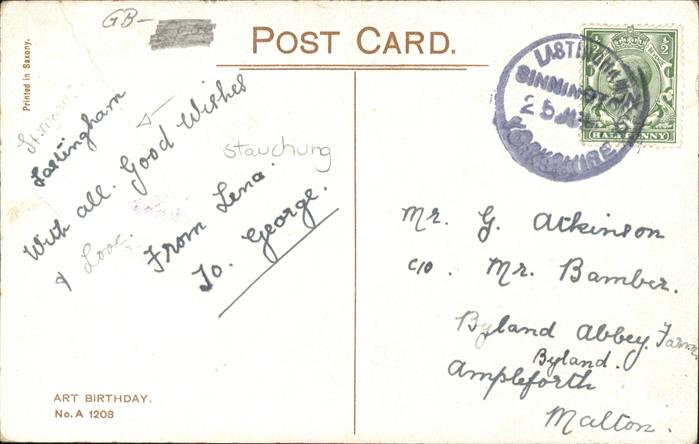 GB-
POST CARD.
Printed in Saxony.
Lastingham
With all Good Wishes
& Love.
From Lena.
To. George.
stauchung
ART BIRTHDAY.
No. A 1208
SINNINGTON
25 JU
YORKSHIRE
HALFPENNY
Mr. G. Atkinson
c/o. Mr. Bamber.
Byland Abbey. Farm
Byland.
Ampleforth
Malton.